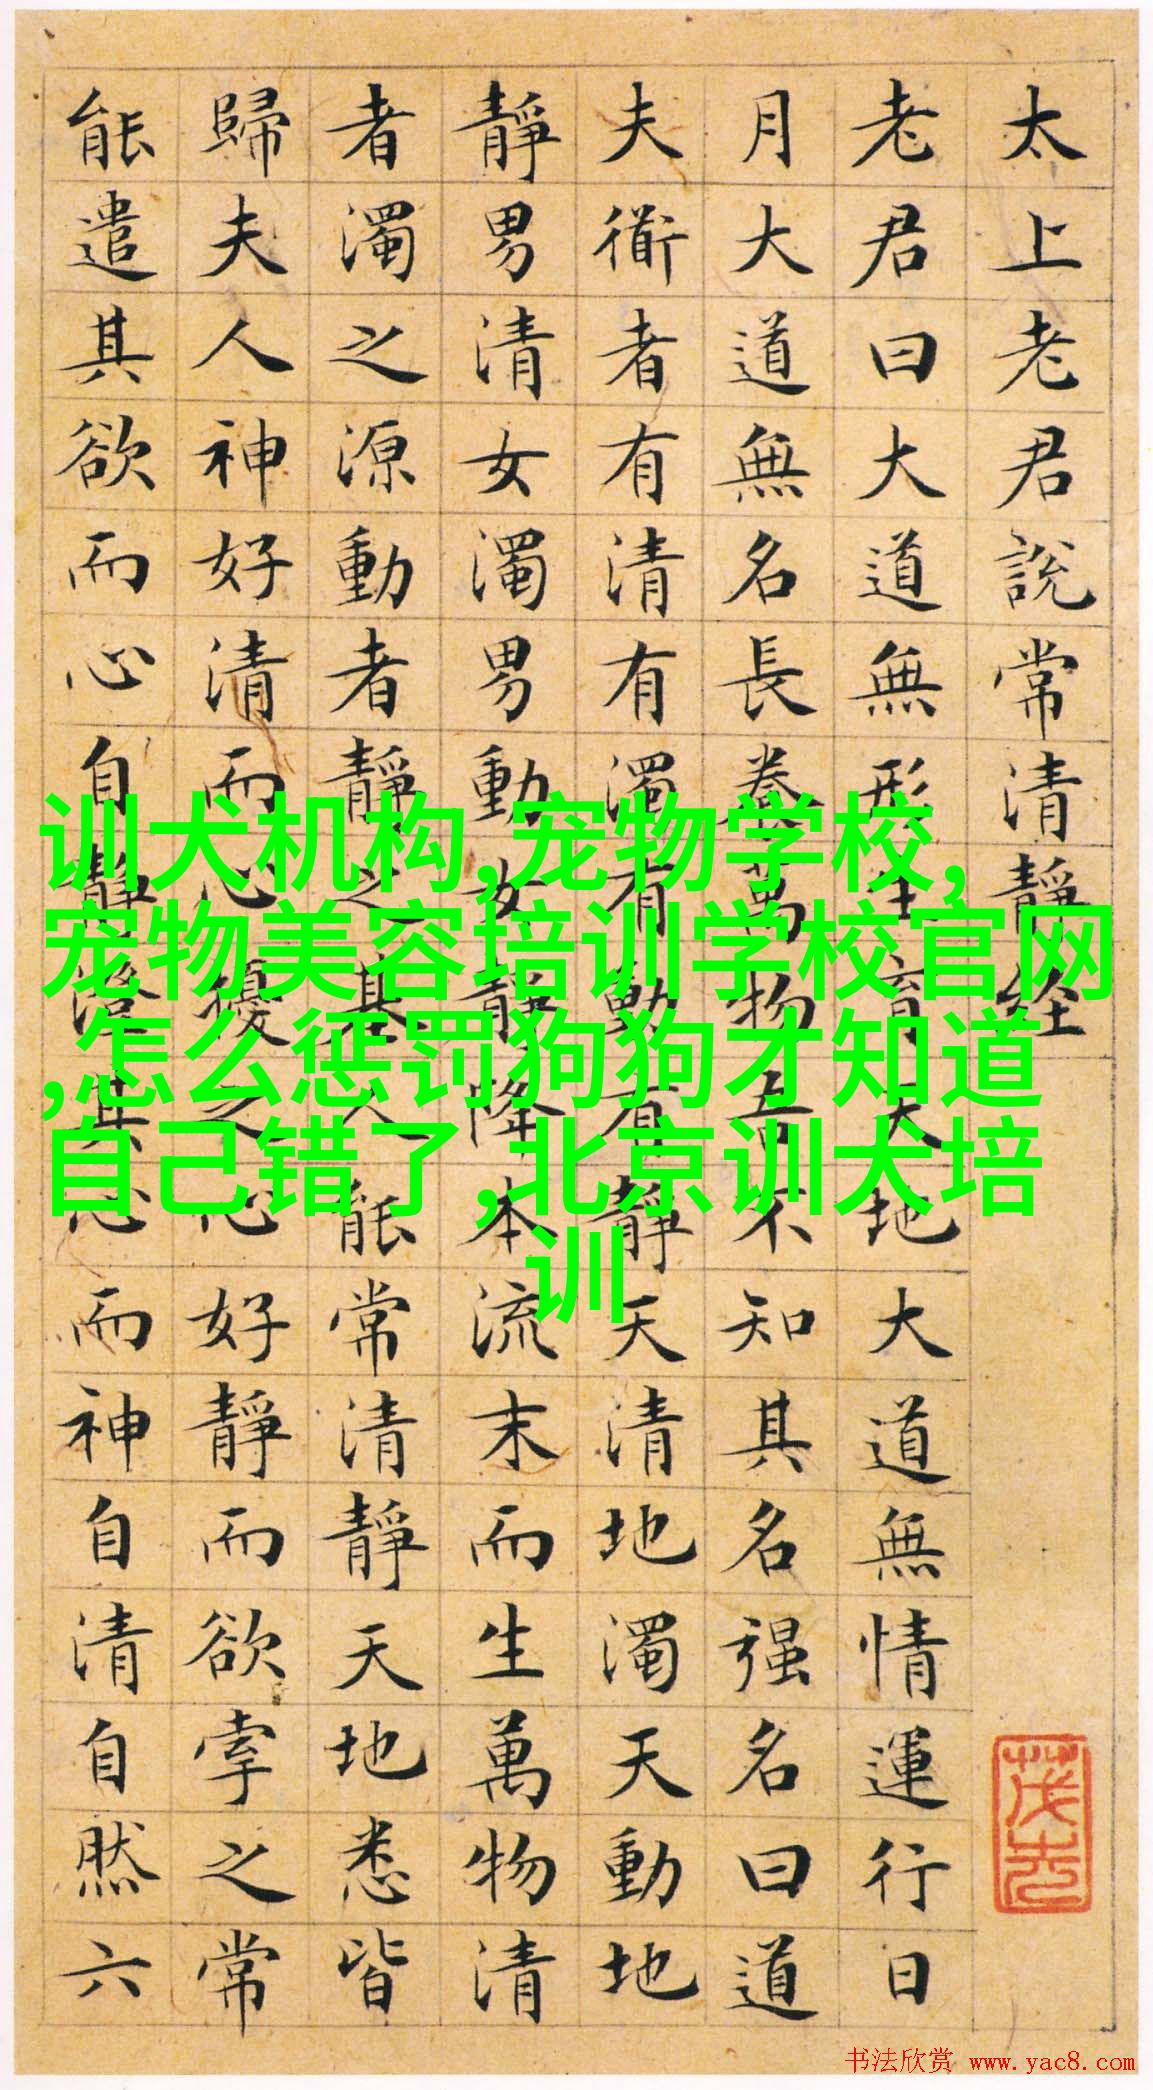 太上老君說常清靜経
老君曰大道無形生育天地大道無情運行日
月大道無名長養萬物吾不知其名强名曰道
夫衜者有清有濁有動有靜天清地濁天動地
靜男清女濁男動女靜降本流末而生萬物清
者濁之源動者靜之基人能常清靜天地悉皆
歸夫人神好清而心擾之心好靜而欲牽之常
能遣其欲而心自靜澄其心而神自清自然六
训犬机构,宠物学校,
宠物美容培训学校官网
,怎么惩罚狗狗才知道
自己错了,北京训犬培
训
书法欣赏 www.yac8.com